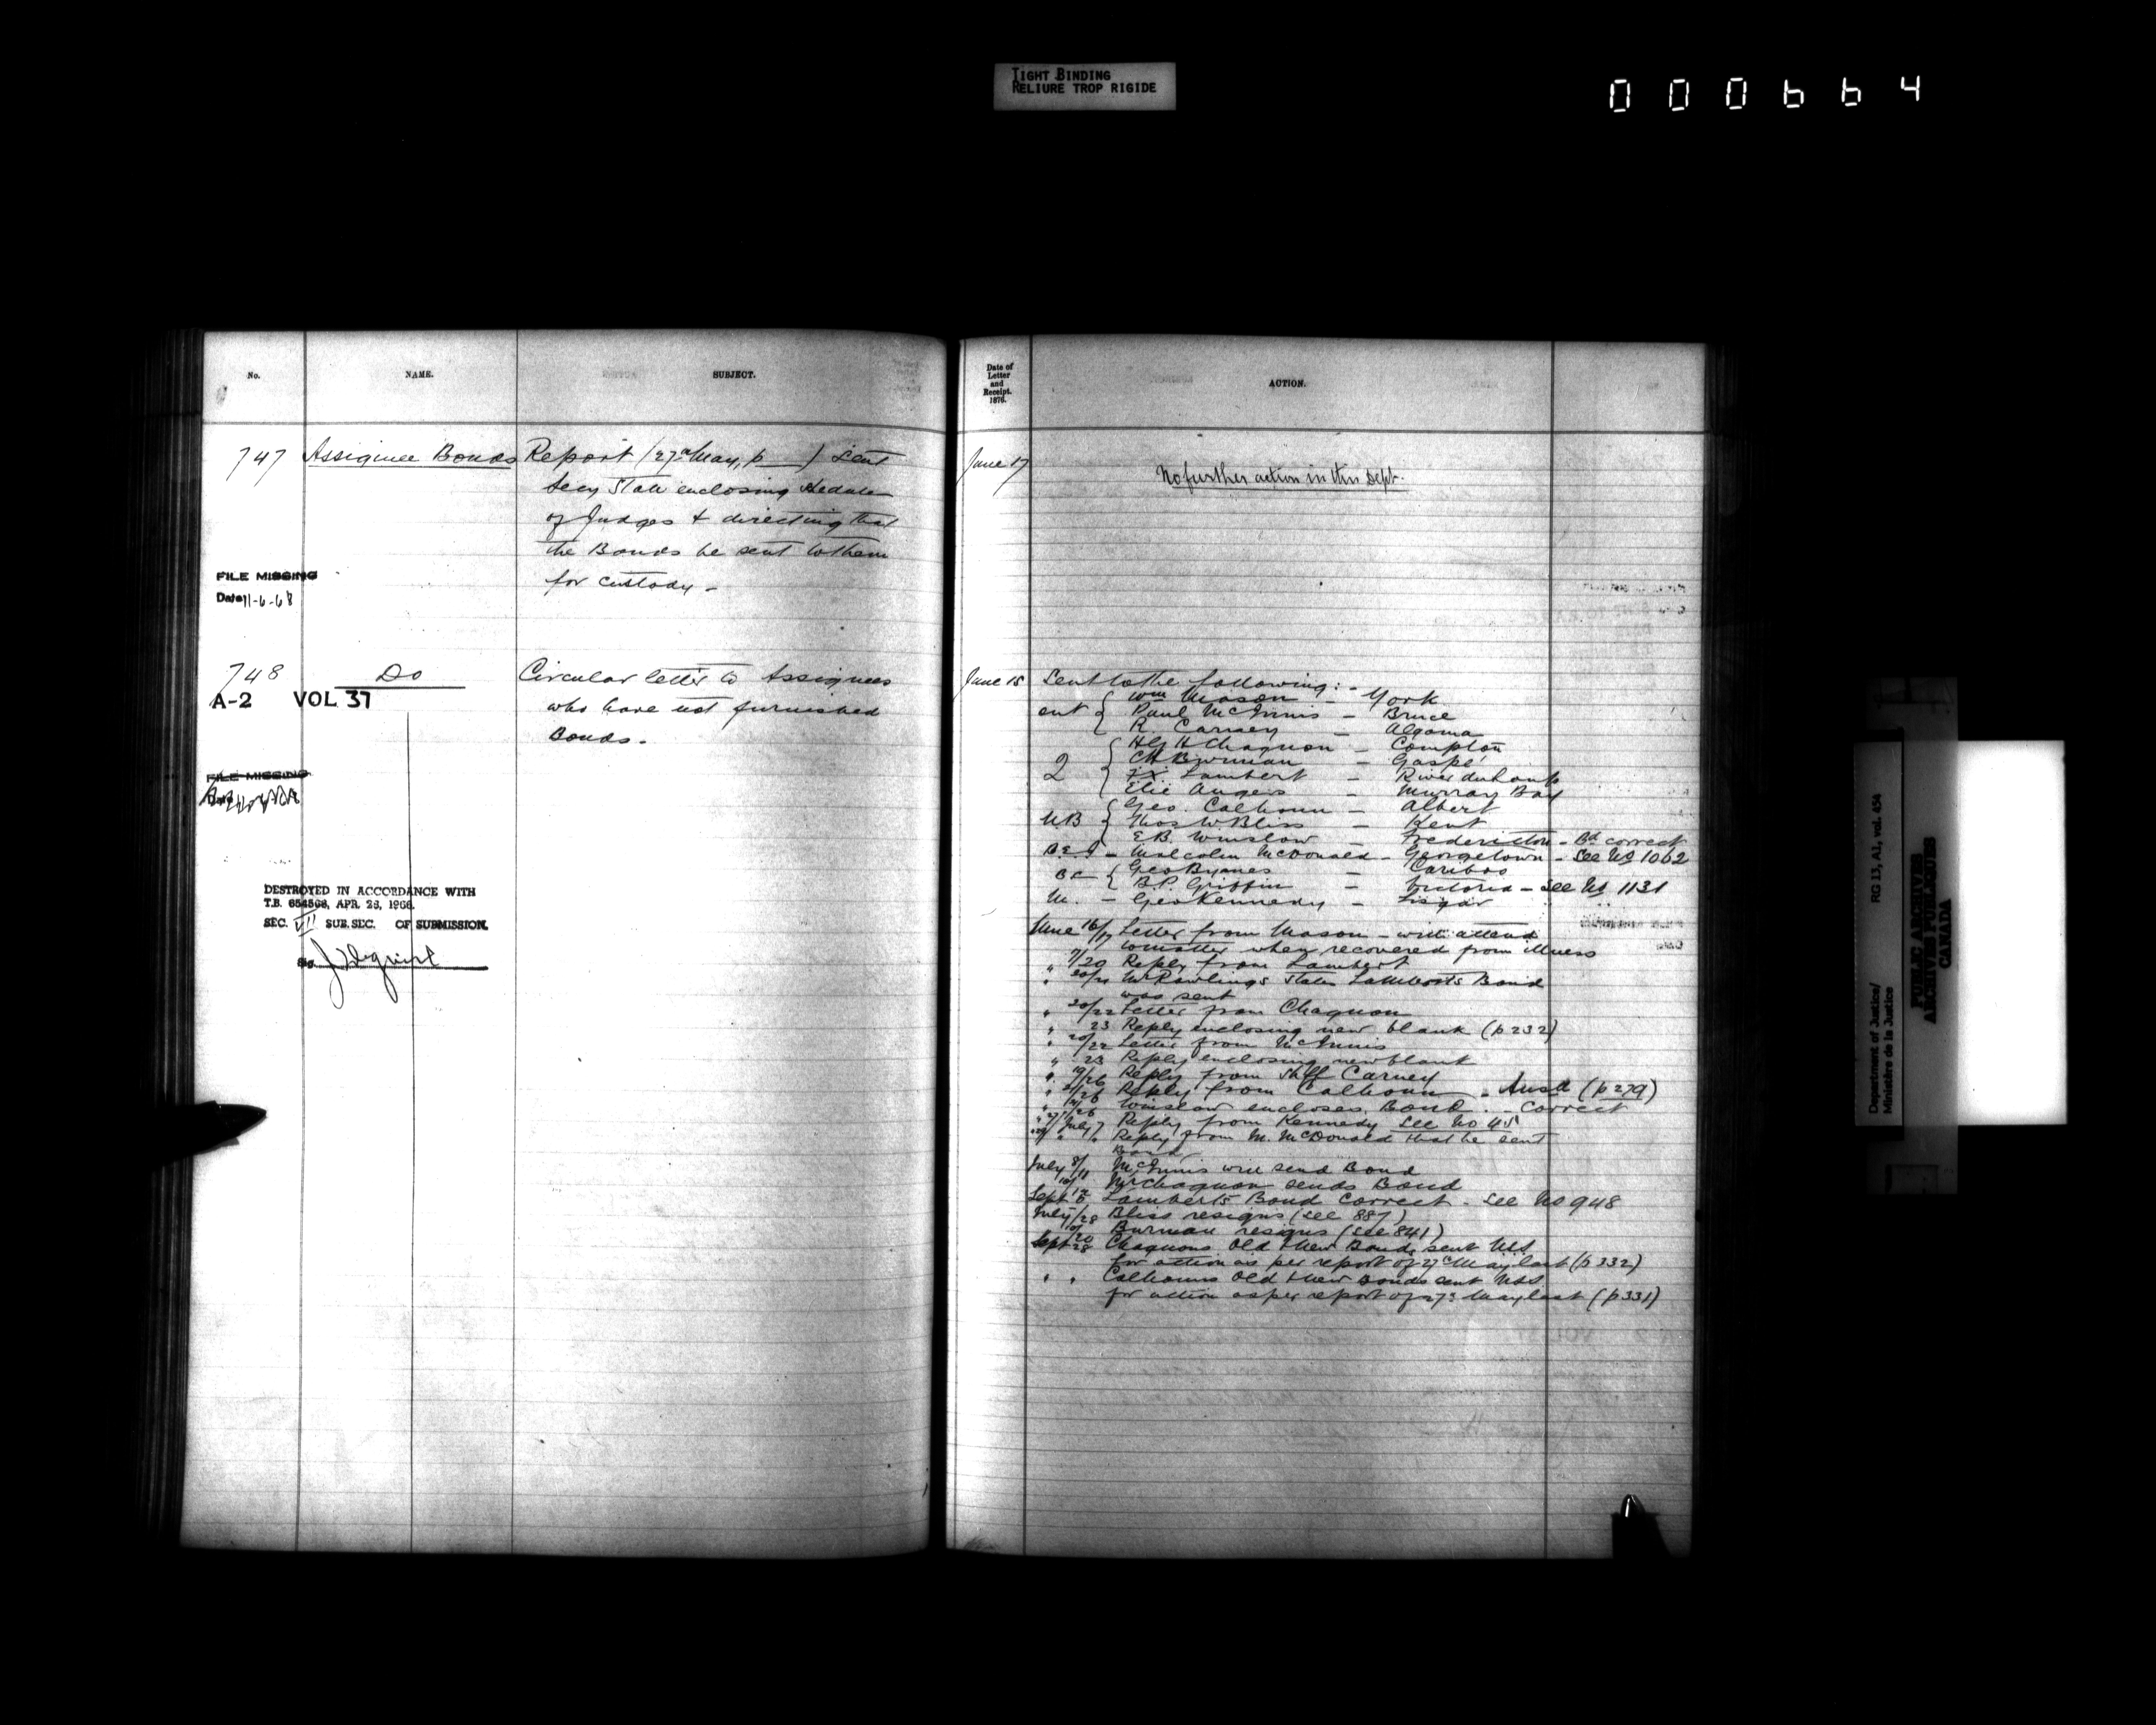 TIGHT BINDING
RELIURE TROP RIGIDE
000664
No.
NAME.
SUBJECT.
747 Assignee Bonds Report (27th May, p ) sent
Secy State enclosing
of Judges & directing that
the Bonds be sent to them
for custody -
FILE MISSING
Date 11-6-68
748 Do Circular letter to Assignees
who have not furnished
Bonds -
A-2 VOL 37
FILE MISSING
DESTROYED IN ACCORDANCE WITH
T.B. 654568, APR. 28, 1966.
SEC. VII SUB. SEC. OF SUBMISSION.
Date of
Letter
and
Receipt.
1876.
ACTION.
June 17
No further action in this Dept.
June 15 Sent to the following: -
Wm Mason - York
Ont { Paul McInnis - Bruce
R. Carney - Algoma
H Chagnon - Compton
Q { - Gaspé
F.X. Lambert - River du Loup
Elie Angers - Murray Bay
Geo. Calhoun - Albert
N.B { Thos W Bliss - Kent
E.B. Winslow - Fredericton - Bd correct
P.E.I - Malcolm McDonald - Georgetown - See No 1062
B C { Geo Byrnes - Cariboo
B.P. Griffin - Victoria - See No 1131
M. - Geo Kennedy - Lisgar
June 16/17 Letter from Mason - will attend
to matter when recovered from illness
" /20 Reply from Lambert
" 20/21 Mr Rawlings states Lamberts Bond
was sent
" 20/22 Letter from Chagnon
" 23 Reply enclosing new blank (p 232)
" 20/22 Letter from McInnis
" 23 Reply enclosing new blank
" 19/26 Reply from Shff Carney
" /26 Reply from Calhoun - Ansd (p 279)
" /26 Winslow encloses Bond - Correct
" 27/July 7 Reply from Kennedy See No 45
" " Reply from M. McDonald that he sent
Bond
July 8/11 McInnis will send Bond
Mr Chagnon sends Bond
Sept Lamberts Bond correct - See No 948
July /28 Bliss resigns (see 887)
Burman resigns (see 841)
Sept 28 Chagnons Old & New Bonds sent USS
for action as per report of 27th May last (p 332)
" " Calhouns Old & New Bonds sent USS.
for action as per report of 27th May last (p 331)
Department of Justice/ RG 13, A1, vol. 454
Ministère de la Justice
PUBLIC ARCHIVES
ARCHIVES PUBLIQUES
CANADA